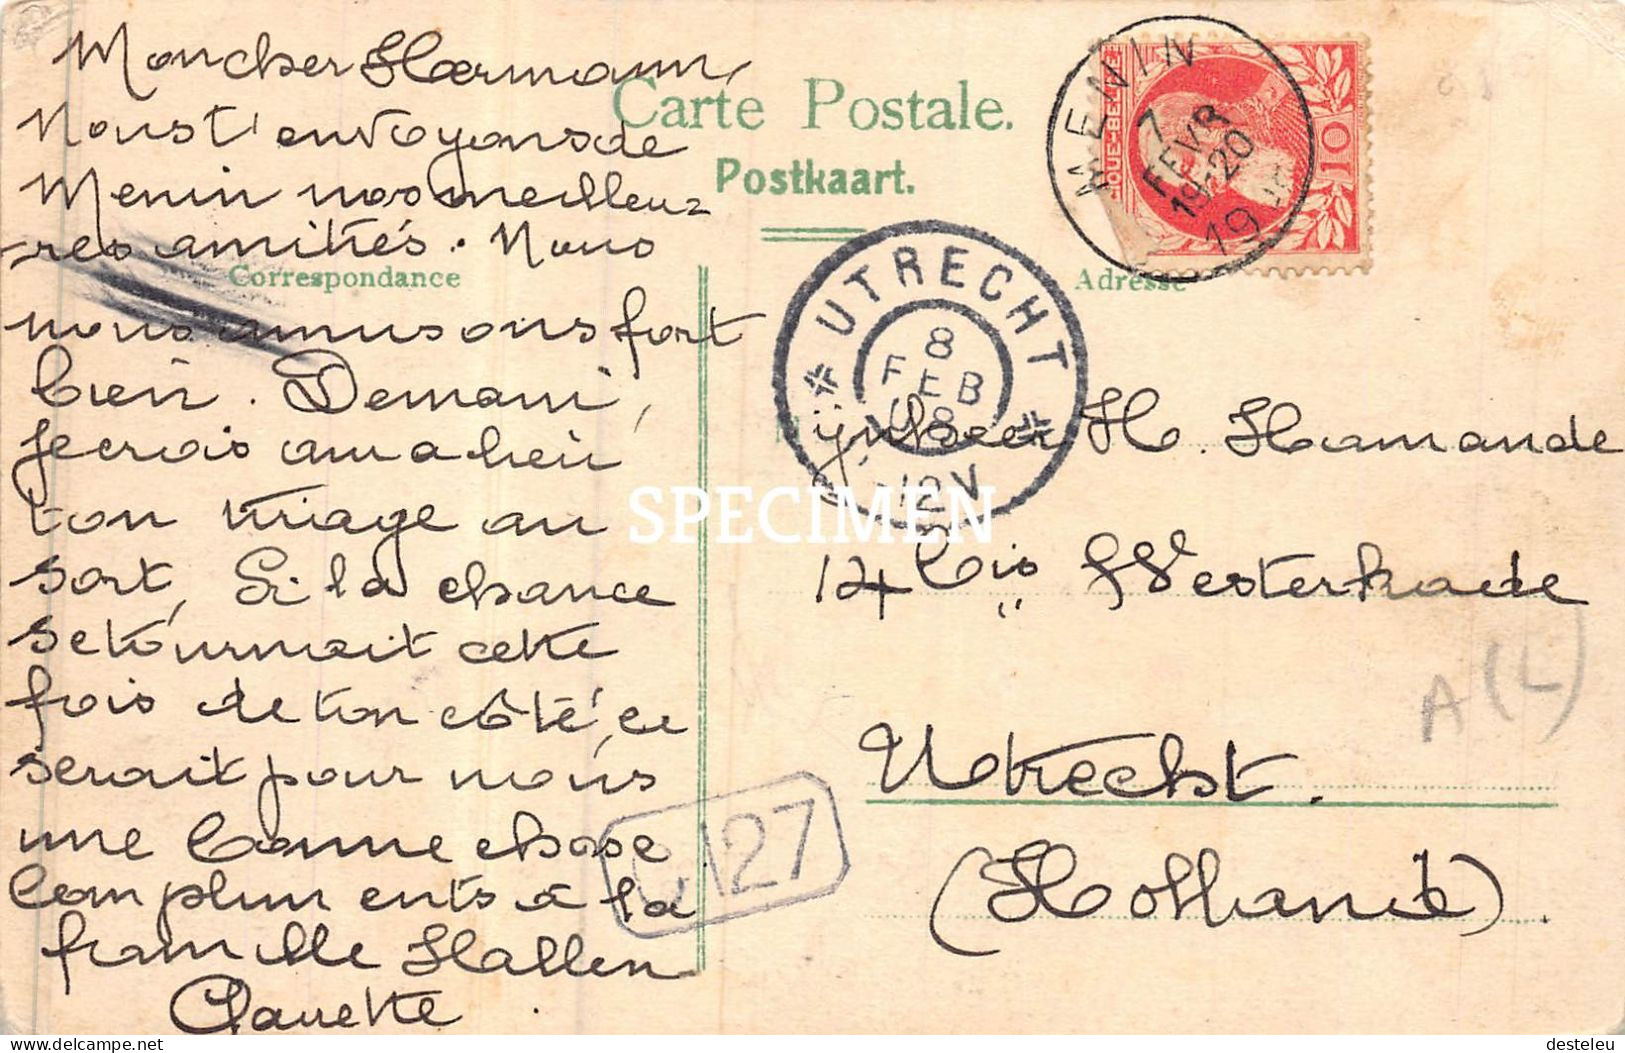 Mon cher Hermann,
Nous t'envoyons de
Menin nos meilleu=
res amitiés. Nous
nous amusons fort
bien. Demain,
je crois, aura lieu
ton tirage au
sort, Si la chance
se tournait cette
fois de ton côté, ce
serait pour nous
une bonne chose
Compliments à la
famille Hallen
Carte Postale.
Postkaart.
Correspondance
Adresse
MENIN
7
FEVR
19-20
19
10
UTRECHT
8
FEB
08
12V
SPECIMEN
H. Hamande
14 bis Westerkade
Utrecht.
(Hollande).
A (L)
27
desteleu